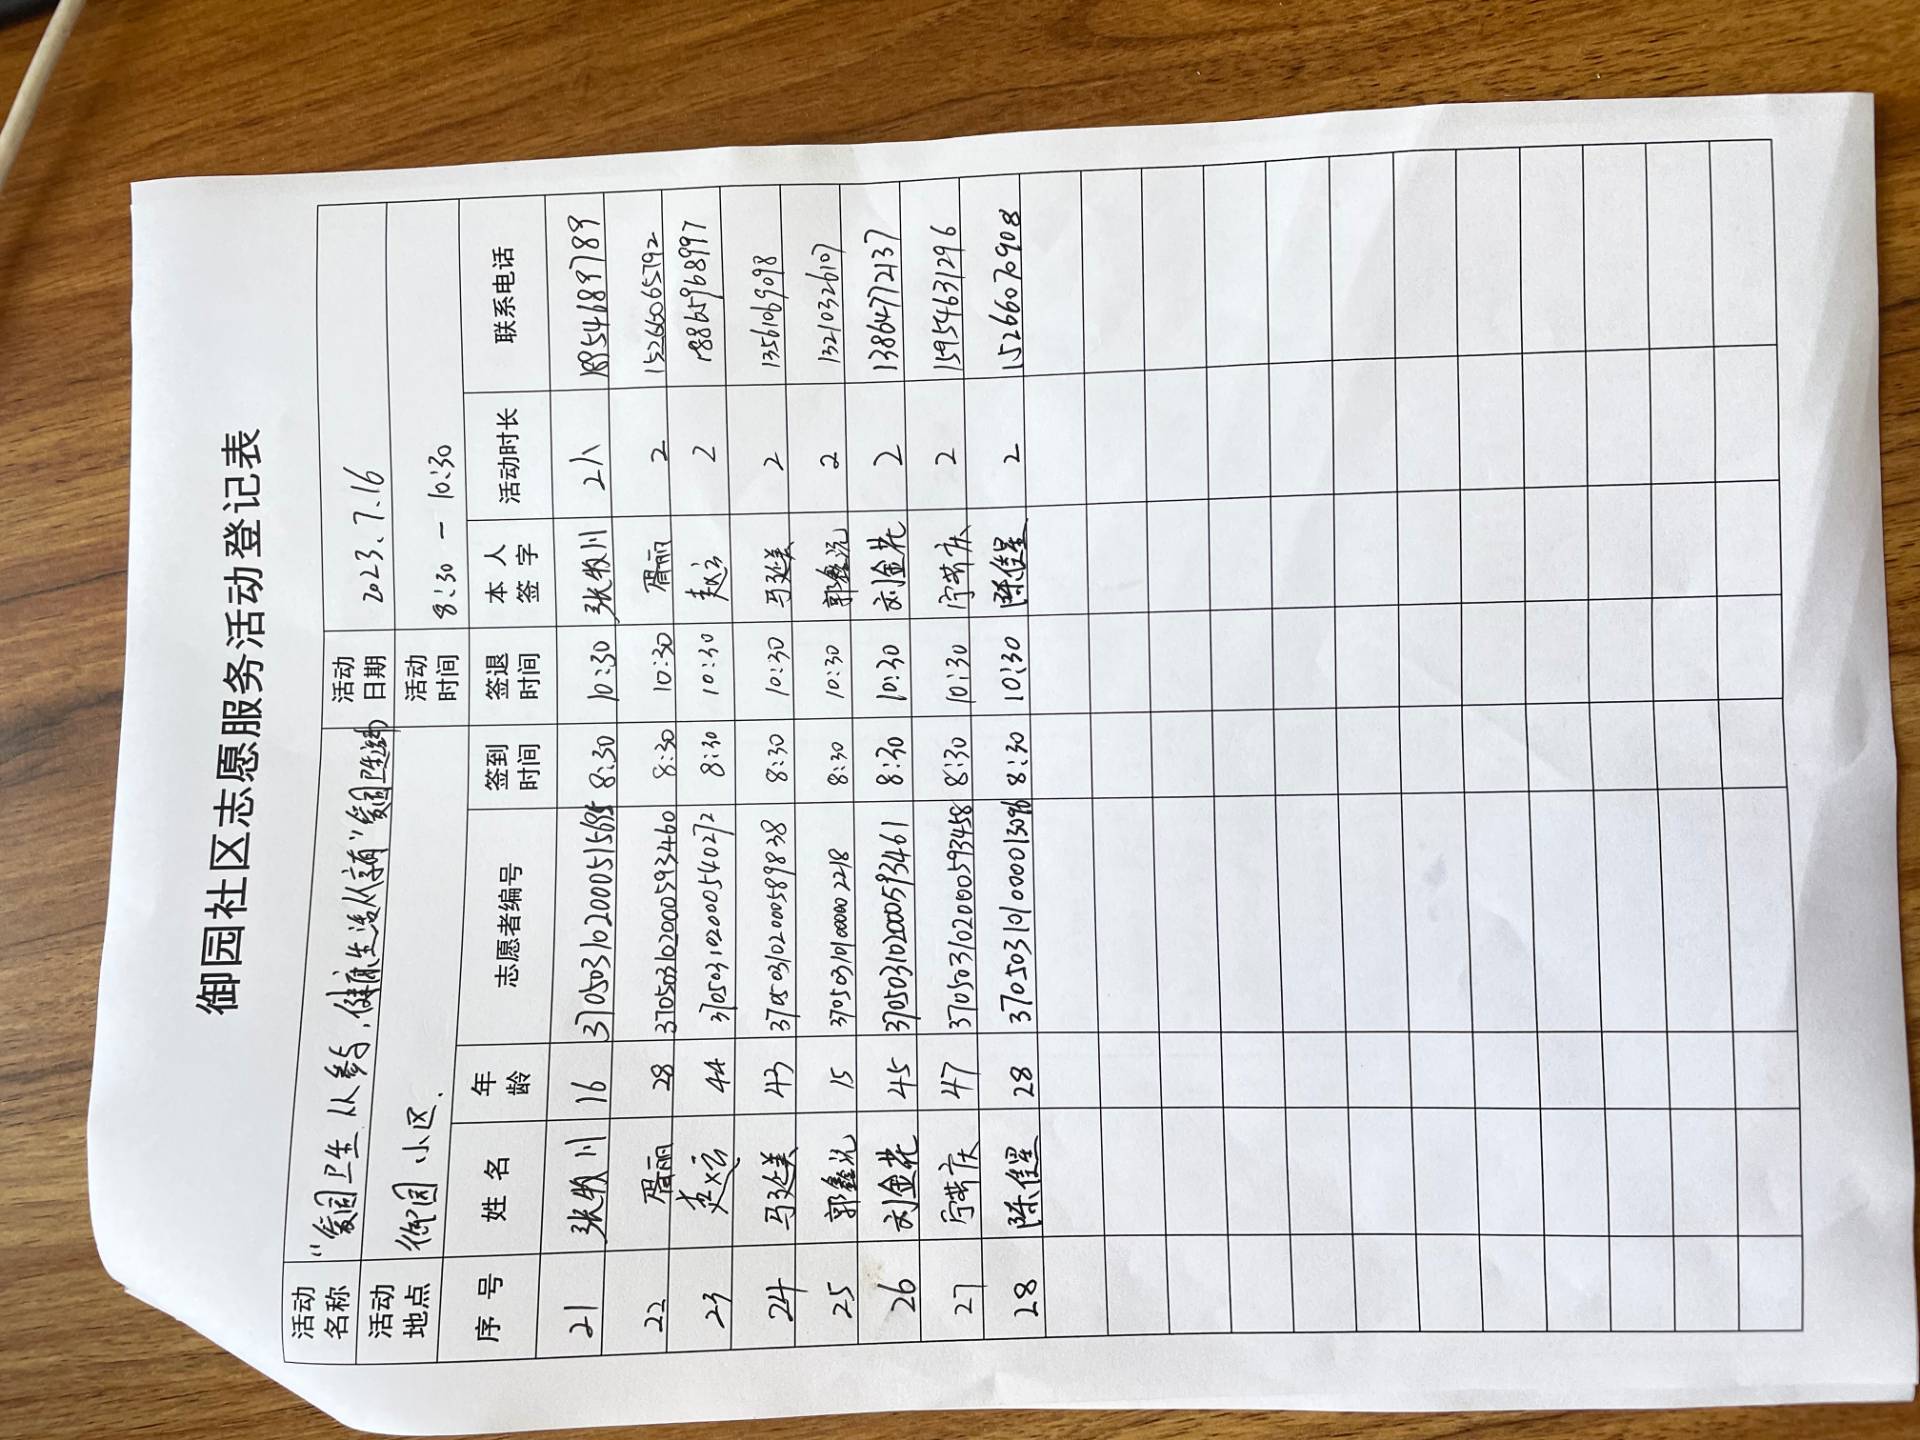 御园社区志愿服务活动登记表
活动名称 "爱国卫生 从参与,健康生活从享有"爱国卫生运动 活动日期 2023.7.16
活动地点 御园小区. 活动时间 8:30 — 10:30
序号 姓名 年龄 志愿者编号 签到时间 签退时间 本人签字 活动时长 联系电话
21 张牧川 16 8:30 10:30 张牧川 2h
22 胥丽 28 370503102000593460 8:30 10:30 胥丽 2 15266065792
23 赵云 44 370503102000540272 8:30 10:30 赵云 2 18865968997
24 马延美 43 370503102000589838 8:30 10:30 马延美 2 13561069098
25 郭鑫说 15 8:30 10:30 郭鑫说 2 13210326107
26 刘金花 45 370503102000593461 8:30 10:30 刘金花 2 13864772137
27 宁芹庆 47 3705031020000593458 8:30 10:30 宁芹庆 2 15954631296
28 陈佳星 28 370503101000013096 8:30 10:30 陈佳星 2 15266070908